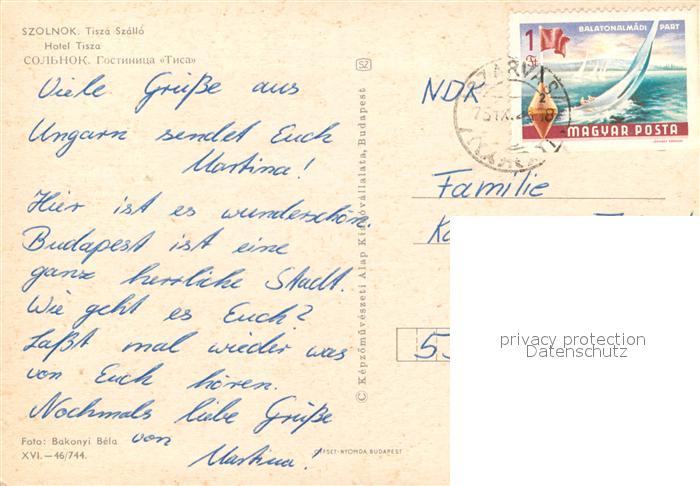 SZOLNOK. Tisza Szálló
Hotel Tisza
СОЛЬНОК. Гостиница «Тиса»
Viele Grüße aus
Ungarn sendet Euch
Martina!
Hier ist es wunderschön.
Budapest ist eine
ganz herrliche Stadt.
Wie geht es Euch?
Laßt mal wieder was
von Euch hören.
Nochmals liebe Grüße
von
Martina!
Foto: Bakonyi Béla
XVI.—46/744.
OFFSET-NYOMDA BUDAPEST
© Képzőművészeti Alap Kiadóvállalata, Budapest
SZ
NDK
SZARVAS
2
1 Ft
BALATONALMÁDI PART
MAGYAR POSTA
Familie
K
55
privacy protection
Datenschutz